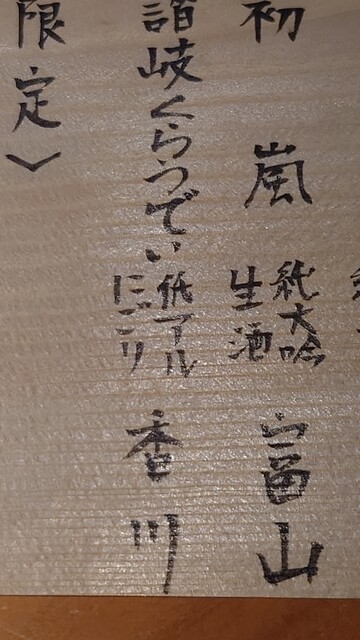 初嵐 純大吟生酒 富山
讃岐くらうでぃ 低アルにごり 香川
限定〉